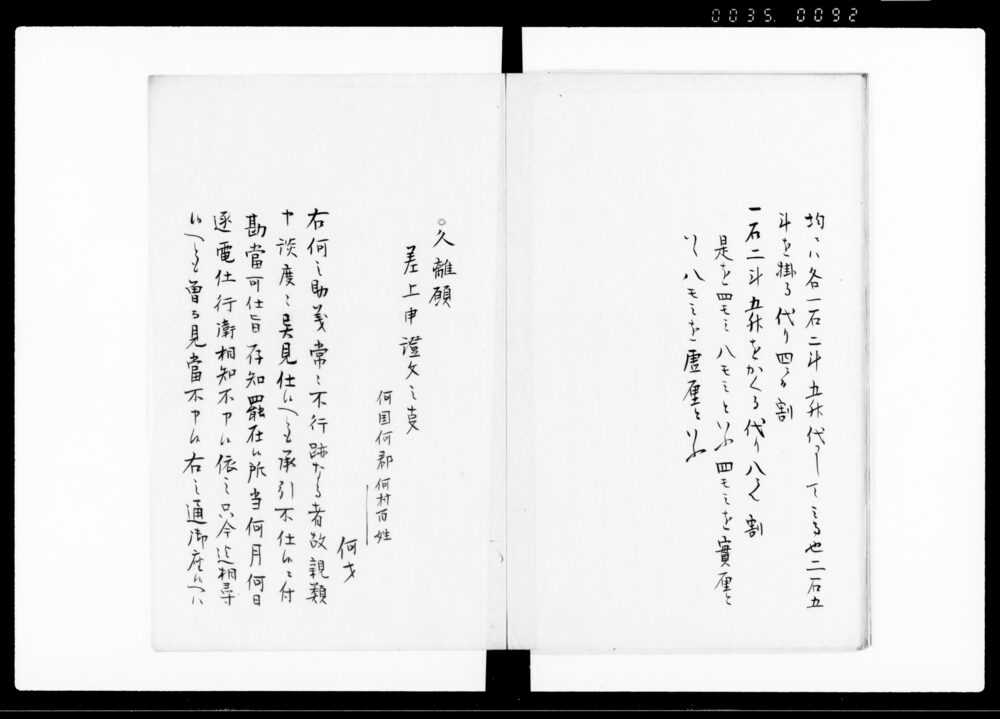 0035. 0092
均ニ〆各一石二斗五舛代りしてミる也二石五
斗を掛る代り四ヲ割
一石二斗五舛をかくる代り八ヲ割
是を四モミ八モミといふ四モミを實厘と
いゝ八モミを虚厘といふ
○久離願
差上申證文之支
何国何郡何村百姓
何才
右何之助義常々不行跡なる者故親類
申談度々異見仕候へ共承引不仕候ニ付
勘當可仕旨存知罷在候所当何月何日
逐電仕行衛相知不申候依之只今迄相尋
候へ共曽而見當不申候右之通御座候へハ